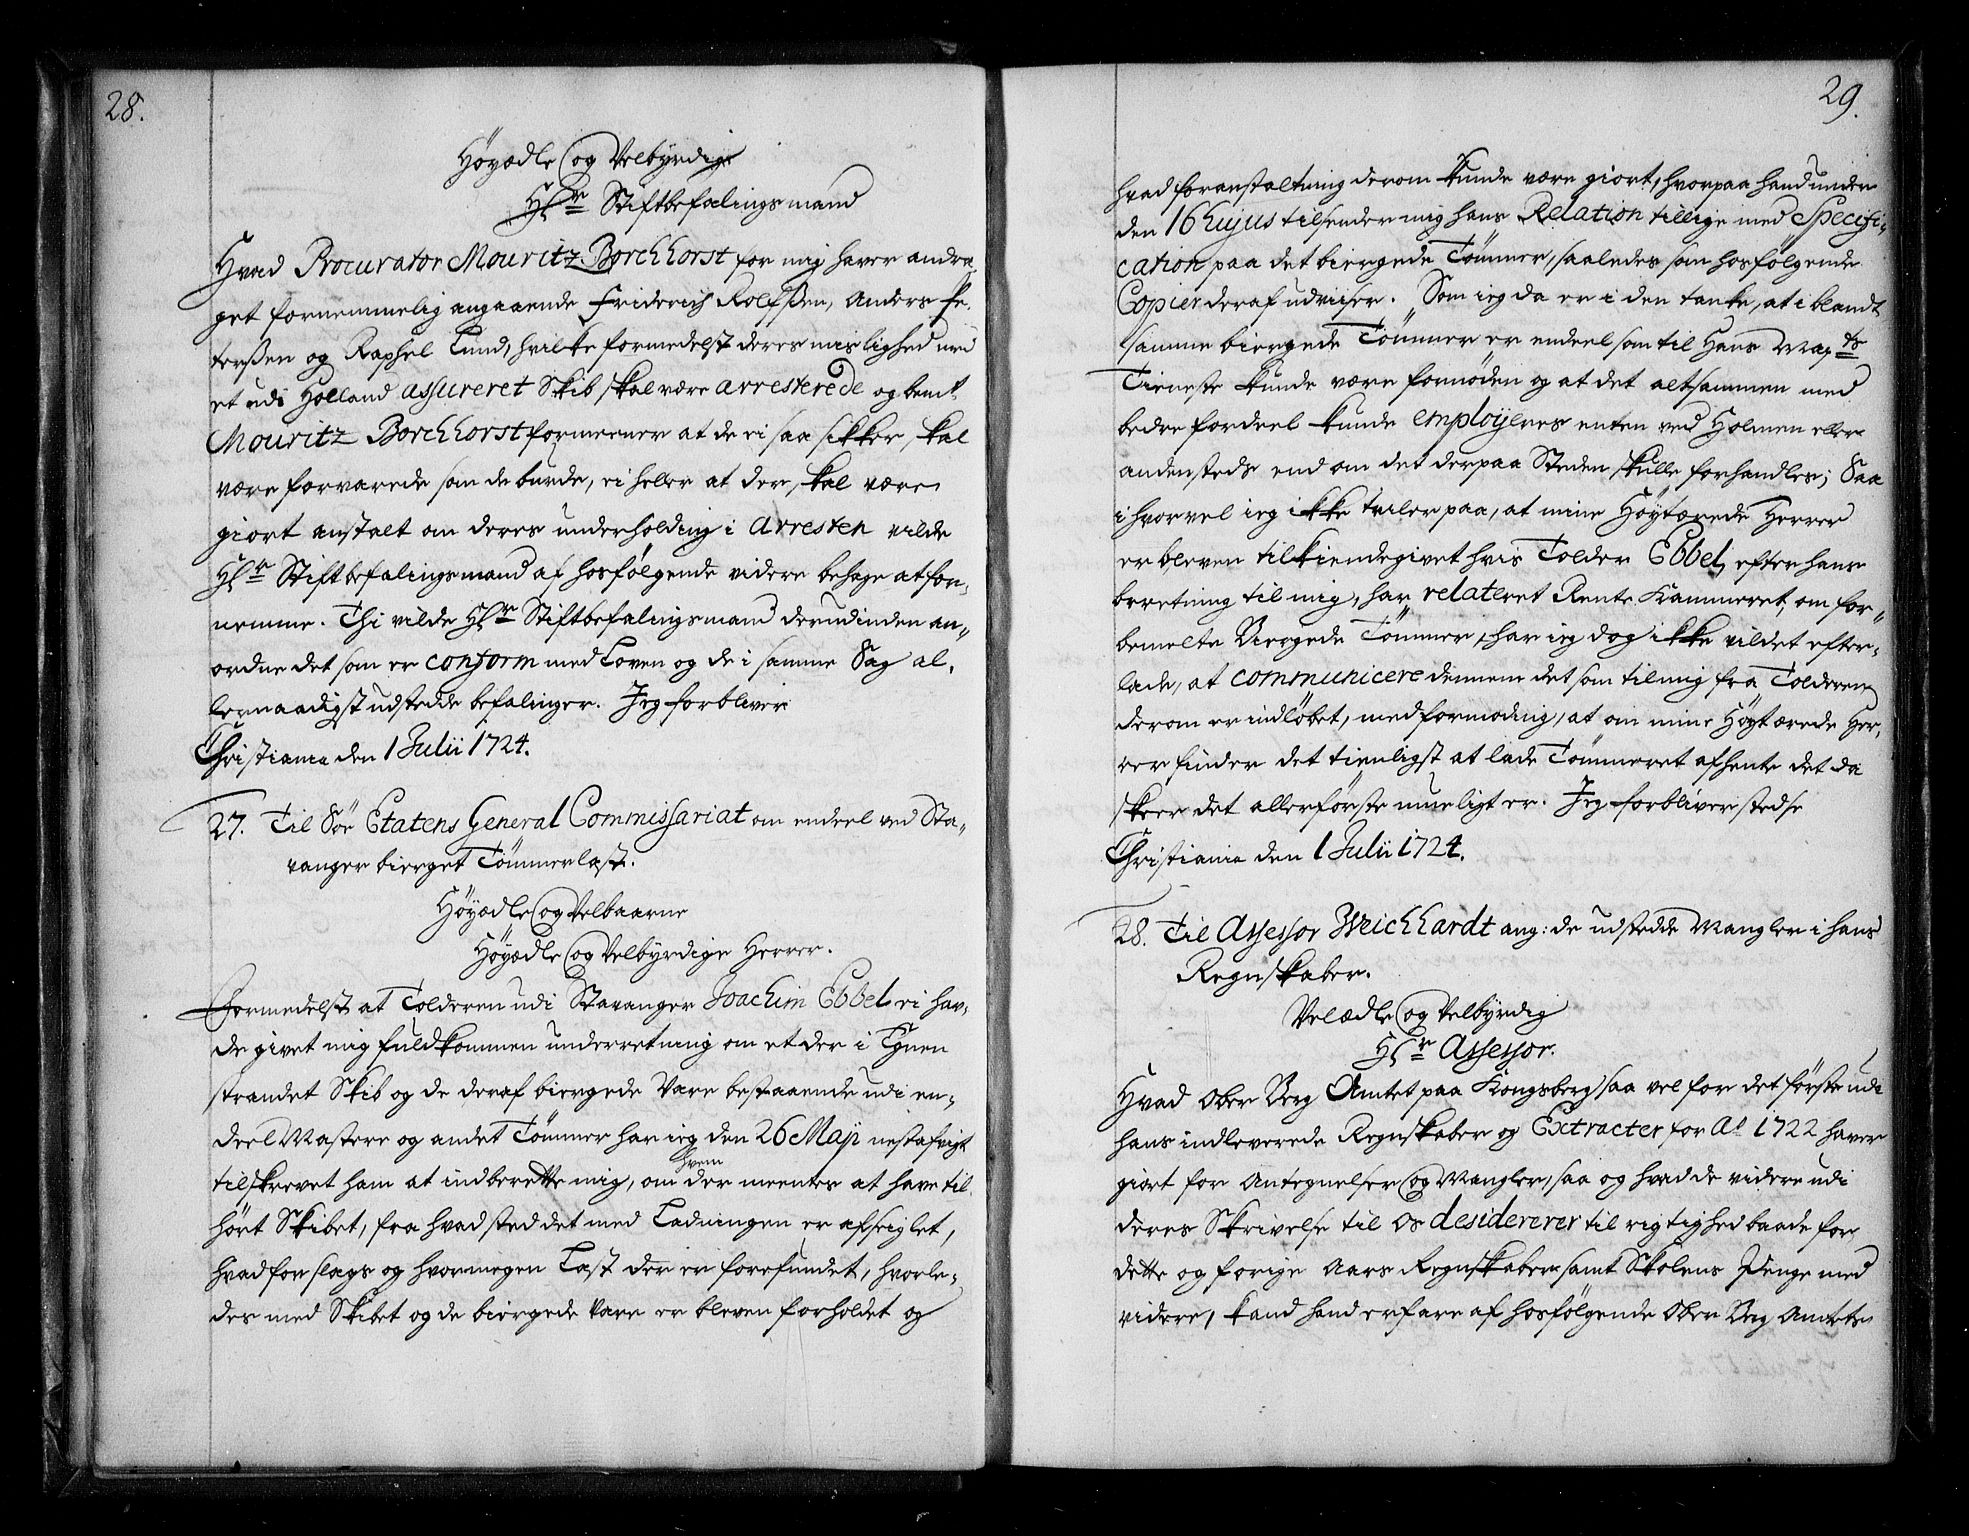 28.
Höyædle og Velbyrdige
Hr Stiftbefalingsmand
Hvad Procurator Mouritz Borchhorst for mig haver andra,
get fornemmelig angaaende Friderich Rolfsßen, Anders Pe,
terßen og Raphel Lund, hvilke formedelst deres mislighed med
et udi Holland assureret Skib skal være arresterede og bemt
Mouritz Borchhorst formeener at de ei saa sikker skal
være forvarede som de burde, ei heller at der skal være
giort anstalt om deres underholding i Arresten vilde
Hr Stiftbefalingsmand af hosfølgende videre behage at for,
nemme. Thi vilde Hr Stiftbefalingsmand derudinden an,,
ordne det som er conform med Loven og de i samme Sag al,
lernaadigst udstedde befalinger. Jeg forbliver
Christiania den 1 Julii 1724.
27. Til Söe Etatens General Commissariat om endeel ved Sta,,
vanger bierget Tömmerlast.
Höyædle og Velbaarne
Höyædle og Velbyrdige Herrer.
Formedelst at Tolderen udi Stavanger Joachim Ebbel ei hav,
de givet mig fuldkommen underretning om et der i Egnen
strandet Skib og de deraf biergede Vare bestaaende udi en,
deel Mastere og andet Tömmer har ieg den 26 Maji nestafvigt
tilskrevet ham at indberette mig, om hvem der meentes at have til,
hört Skibet, fra hvad sted det med Ladningen er afseiglet,
hvad for slags og hvormegen Last der er forefundet, hvorle,
des med Skibet og de biergede Vare er bleven forholdet og
29.
hvad foranstaltning derom kunde være giort, hvorpaa hand under
den 16 hujus tilsender mig hans Relation tillige med Specifi,
cation paa det biergede Tömmer, saaledes som hosfölgende
Copier deraf udviser. Som ieg da er i den tanke, at i blandt
samme biergede Tömmer er endeel som til Hans Mayts
Tieneste kunde være fornöden og at det altsammen med
bedre fordeel kunde employeres enten ved Holmen eller
andensteds end om det derpaa Steden skulle forhandles; Saa
ihvorvel ieg ikke tviler paa, at mine Höytærede Herrer
er bleven tilkiendegivet hvis Tolder Ebbel, efter hans
beretning til mig, har relateret Rente Kammeret, om for,,
bemelte Biergede Tömmer, har ieg dog ikke vildet efter,
lade, at communicere dennem det som til mig fra Tolderen
derom er indlöbet, med formoding, at om mine Höytærede Her,
rer finder det tienligst at lade Tömmeret afhente det da
skeer det allerförste mueligt er. Jeg forbliver stedse
Christiania den 1 Julii 1724.
28. Til Assessor Weichhardt ang: de udstedde Mangler i hans
Regnskaber.
Velædle og Velbyrdig
Hr Assessor.
Hvad Ober Berg Amtet paa Kongsberg saa vel for det förste udi
hans indleverede Regnskaber og Extracter for Ao 1722 haver
giort for Antegnelser og Mangler, saa og hvad de videre udi
deres Skrivelse til Os desidererer til rigtighed baade for
dette og forige Aars Regnskaber samt Skolens Penge med
videre, kand hand erfare af hosfölgende Ober Berg Amtets